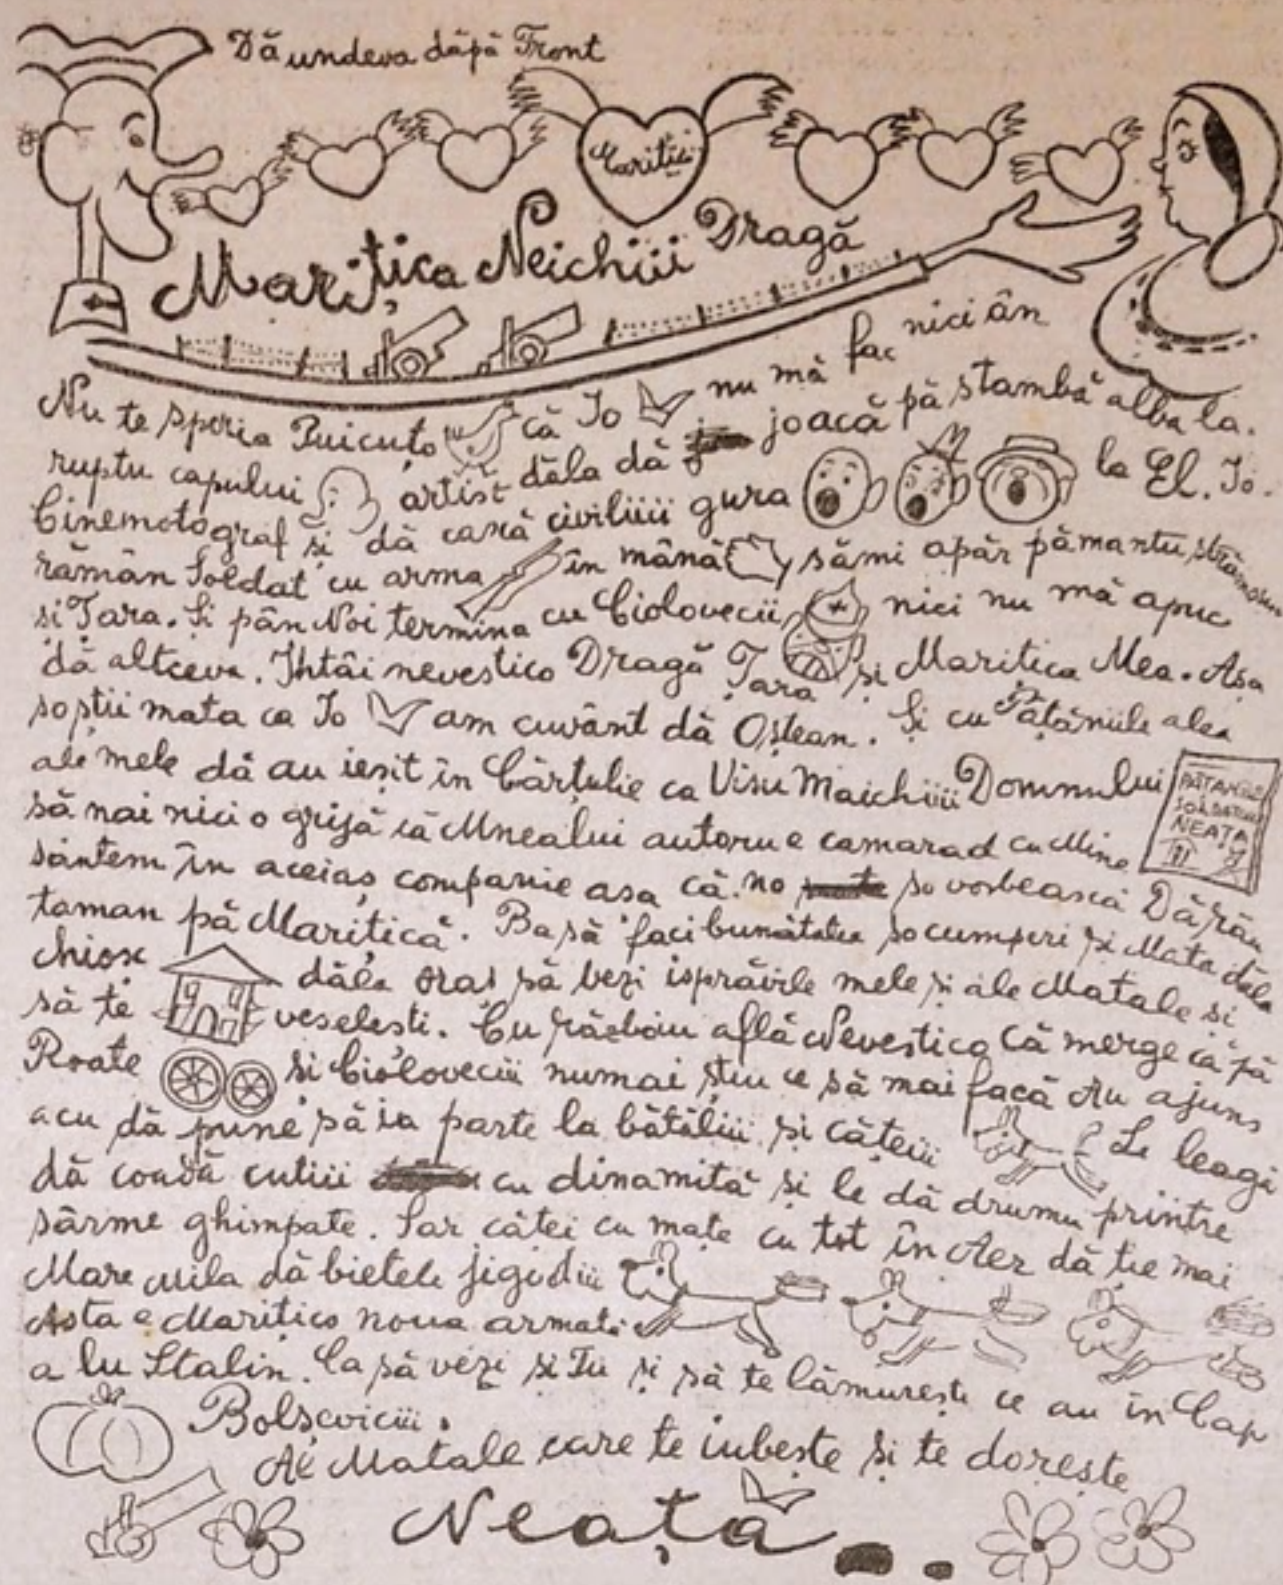 Dă undeva dăpă Front
Maritică
Marițica Neichiii Dragă
Nu te speria Puicuțo că Io nu mă fac nici ân
ruptu capului artist dăla dă joacă pă stambă alba la.
Cinemotograf și dă cască civiliiii gura la El. Io.
rămân Soldat cu arma în mână sămi apăr pămantu
si Țara. Și pân Noi termina cu Ciolovecii nici nu mă apuc
dă altceva. Întâi nevestico Dragă Țara și Maritica Mea. Așa
soștii mata ca Io am cuvânt dă Oștean. Și cu Pățăniile alea
ale mele dă au ieșit în Cărtulie ca Visu Maichiiii Domnului
PĂȚANIILE
SOLDATULUI
NEAȚĂ
să nai nici o grijă că Mnealui autoru e camarad cu Mine
sântem în aceiaș companie asa că. no so vorbească Dă rău
taman pă Marițică. Ba să faci bunătatea so cumperi și Mata dăla
chiosc dăla oraș să vezi isprăvile mele și ale Matale si
să te veselești. Cu războiu află Nevestico Că merge că pă
Roate si Cioloveciii numai știu ce să mai facă Au ajuns
acu dă pune să ia parte la bătăliii și cățeiii Le leagă
dă coadă cutiii cu dinamită și le dă drumu printre
sârme ghimpate. Sar cătei cu mațe cu tot în Aer dă ție mai
Mare Mila dă bietele jigodiii
Asta e Marițico noua armată
a lu Stalin. Ca să vezi si Tu și să te lămurești ce au în Cap
Bolșeviciii.
Al Matale care te iubește și te dorește
Neață